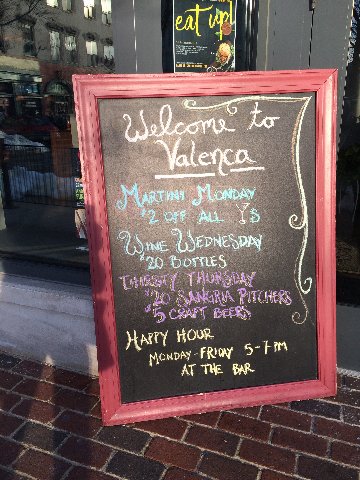 eat up!
Welcome to
Valença
Martini Monday
$2 off all Ys
Wine Wednesday
$20 Bottles
Thirsty Thursday
$20 Sangria Pitchers
$5 Craft Beers
Happy Hour
Monday-Friday 5-7pm
at the bar